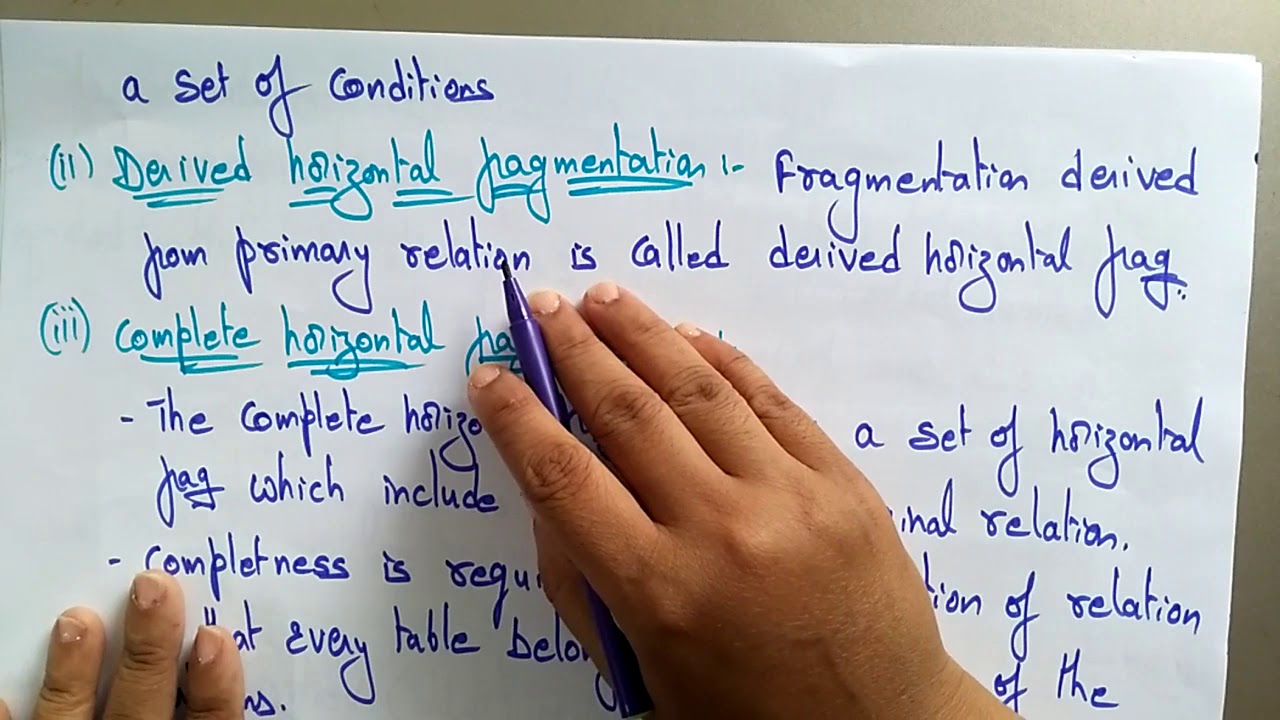 a set of conditions
(ii) Derived horizontal fragmentation :- Fragmentation derived
from primary relation is called derived horizontal frag.
(iii) Complete horizontal
- The complete a set of horizontal
frag which include relation.
- Completness is of relation
every table
of the